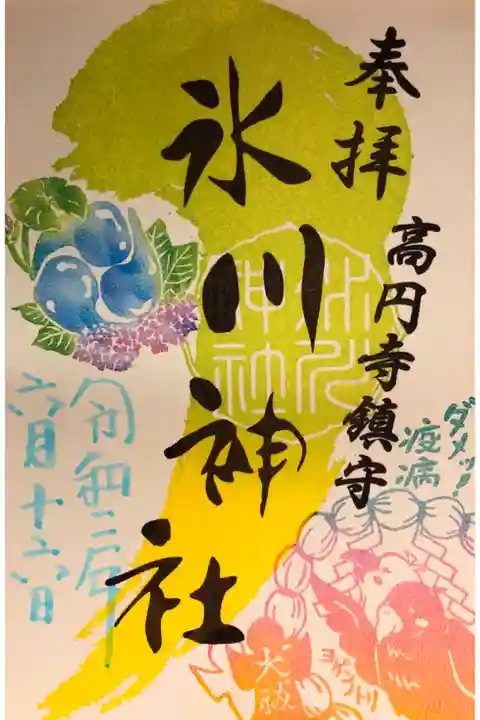 奉拝
高円寺鎮守
ダメッ!
疫病
氷川神社
氷川
神社
令和二年
六月十六日
大祓